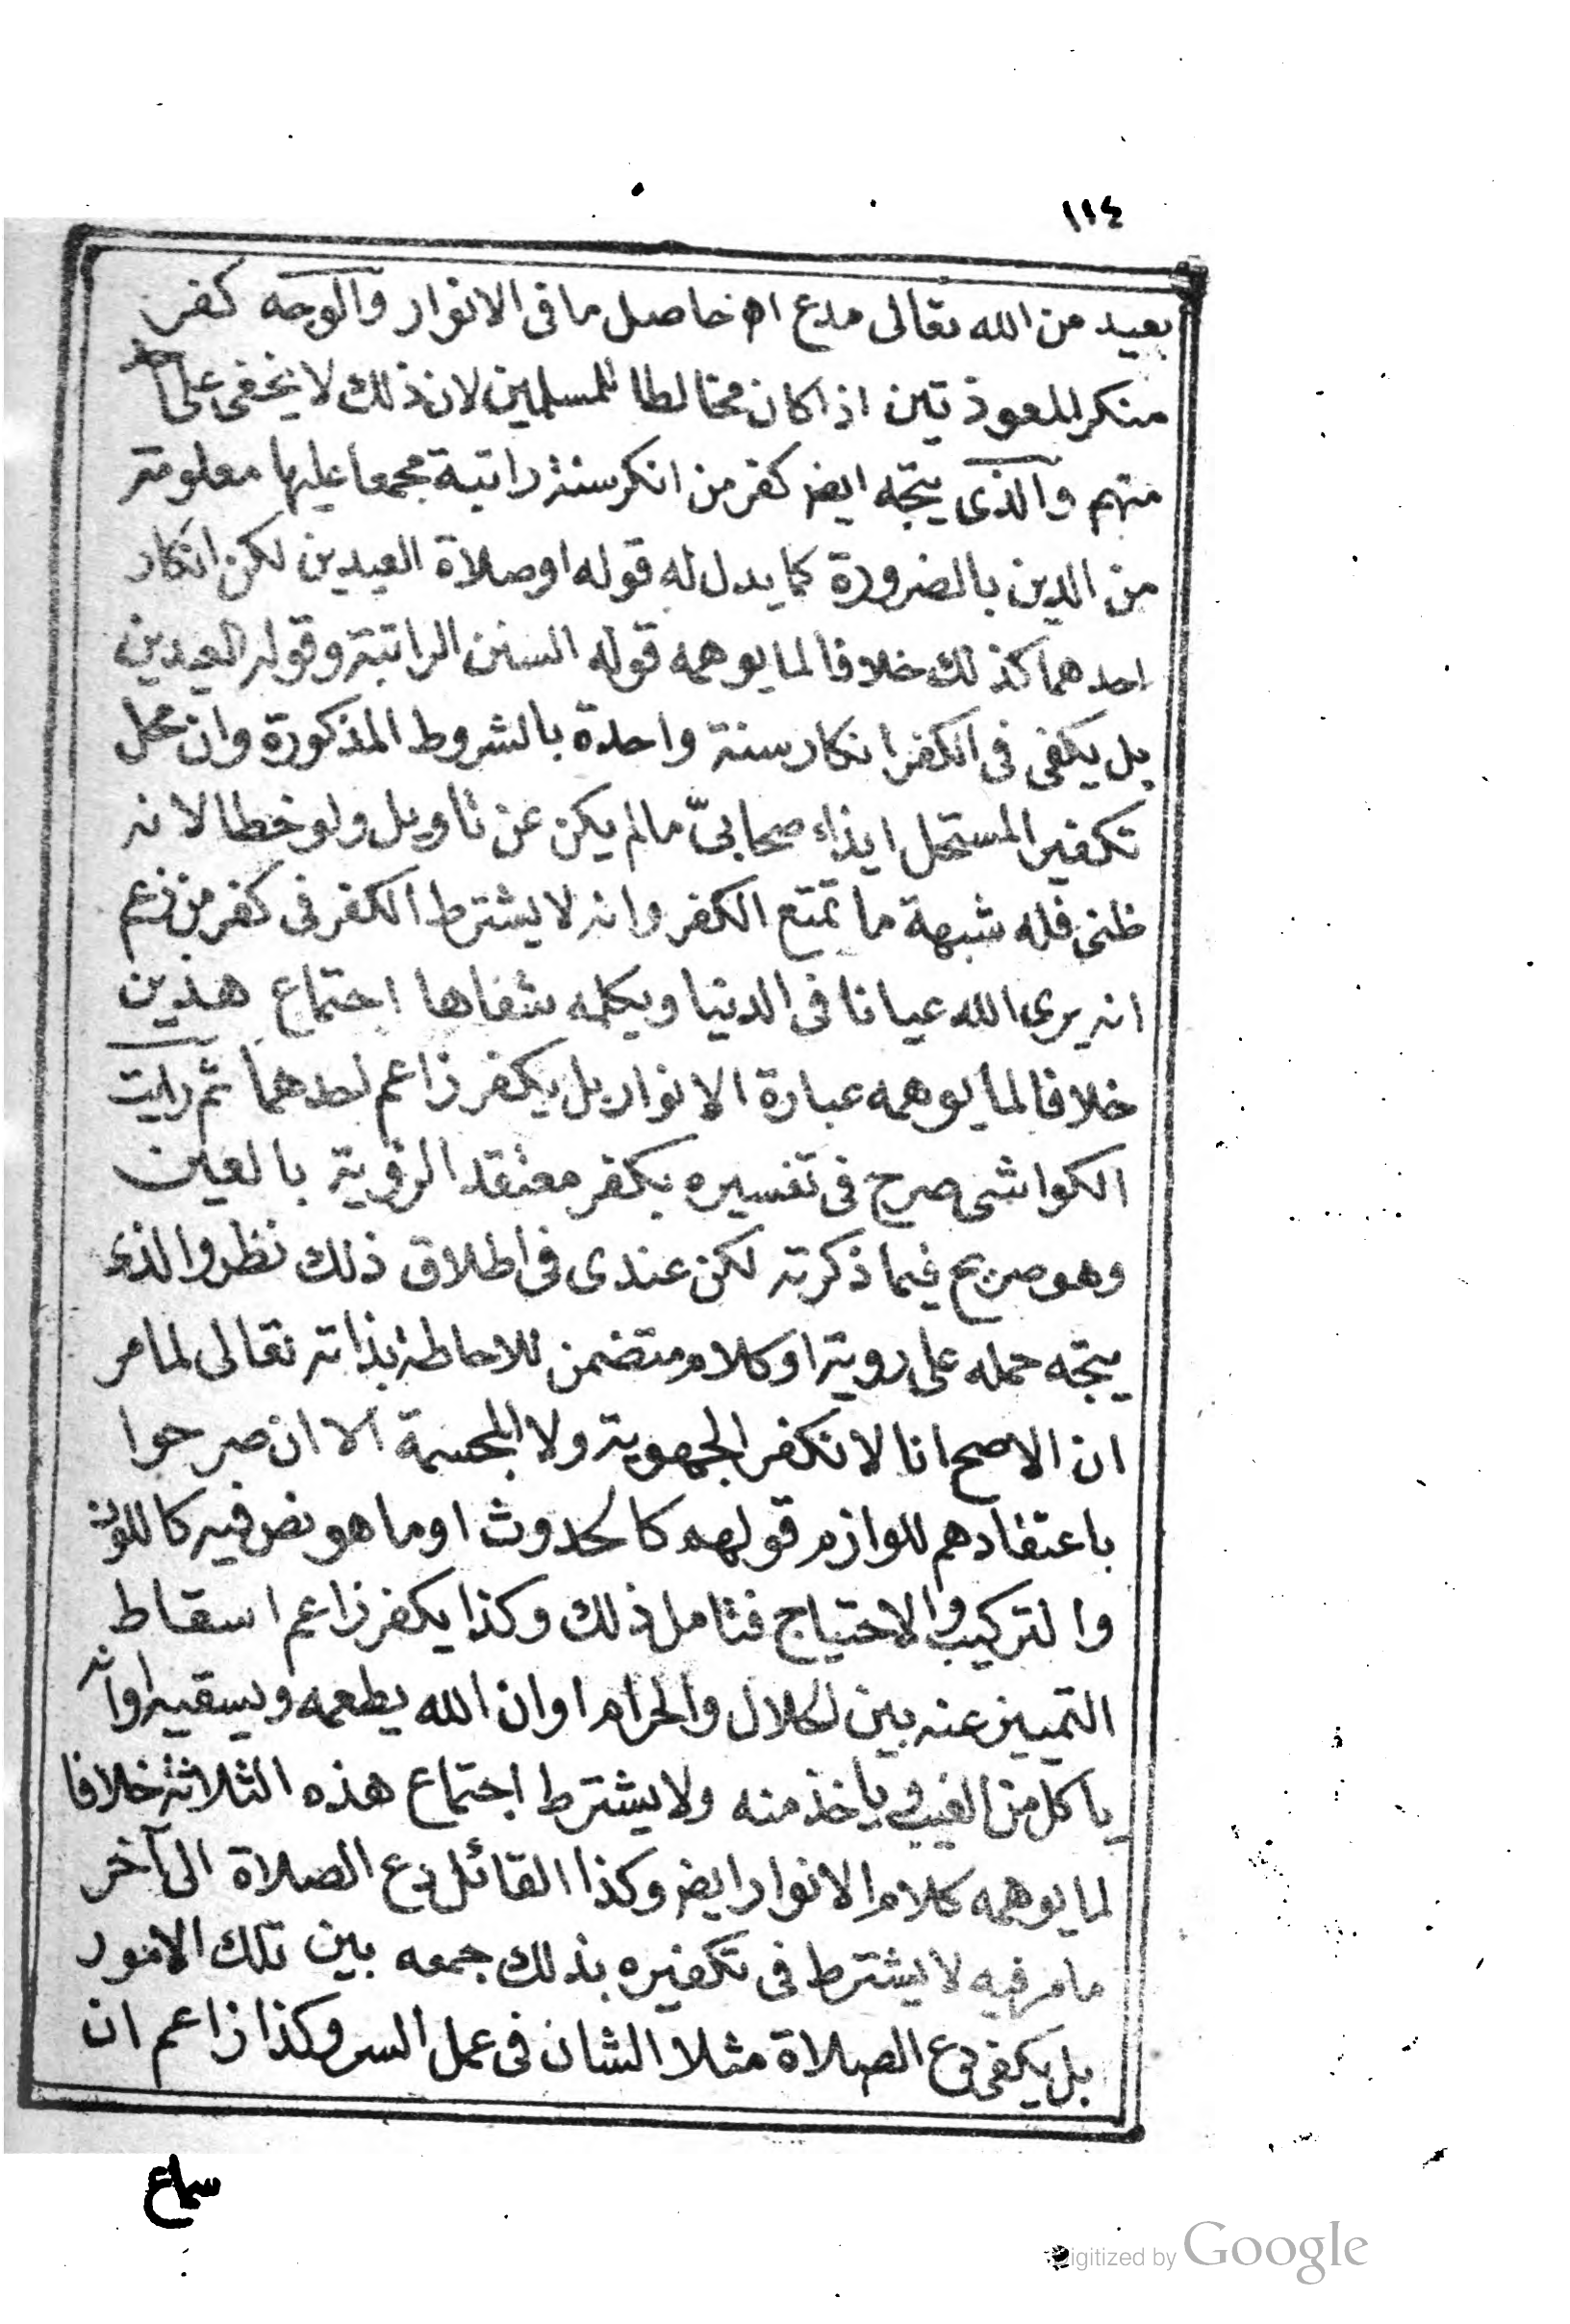 ١١٤
بعيد من الله تعالى مدع اه حاصل ما فى الانوار والوجه كفر
منكر المعوذتين اذا كان مخالطا للمسلمين لان ذلك لا يخفى على احد
منهم والذى يتجه ايض كفر من انكر سنة راتبة مجمعا عليها معلومة
من الدين بالضرورة كما يدل له قوله او صلاة العيدين لكن انكار
احدهما كذلك خلافا لما يوهمه قوله السنن الراتبة وقوله العيدين
بل يكفى فى الكفر انكار سنة واحدة بالشروط المذكورة وان محل
تكفير المستحل ايذاء صحابىّ ما لم يكن عن تاويل ولو خطا لانه
ظنى فله شبهة ما تمنع الكفر وانه لا يشترط الكفر فى كفر من زعم
انه يرى الله عيانا فى الدنيا ويكلمه شفاها اجتماع هذين
خلافا لما يوهمه عبارة الانوار بل يكفر زاعم احدهما ثم رايت
الكواشى صرح فى تفسيره بكفر معتقد الرؤية بالعين
وهو صريح فيما ذكرته لكن عندى فى اطلاق ذلك نظر والذى
يتجه حمله على روية او كلام متضمن للاحاطة بذاته تعالى لما مر
ان الاصح انا لا نكفر الجهوية ولا المجسمة الا ان صرحوا
باعتقادهم للوازم قولهم كالحدوث او ما هو نص فيه كاللون
والتركيب والاحتياج فتامل ذلك وكذا يكفر زاعم اسقاط
التمييز عنه بين الحلال والحرام او ان الله يطعمه ويسقيه او انه
ياكل من الغيب و ياخذ منه ولا يشترط اجتماع هذه الثلاثة خلافا
لما يوهمه كلام الانوار ايض وكذا القائل دع الصلاة الى آخر
ما مر فيه لا يشترط فى تكفيره بذلك جمعه بين تلك الامور
بل يكفى دع الصلاة مثلا الشان فى عمل السر وكذا زاعم ان
سماع
Digitized by Google